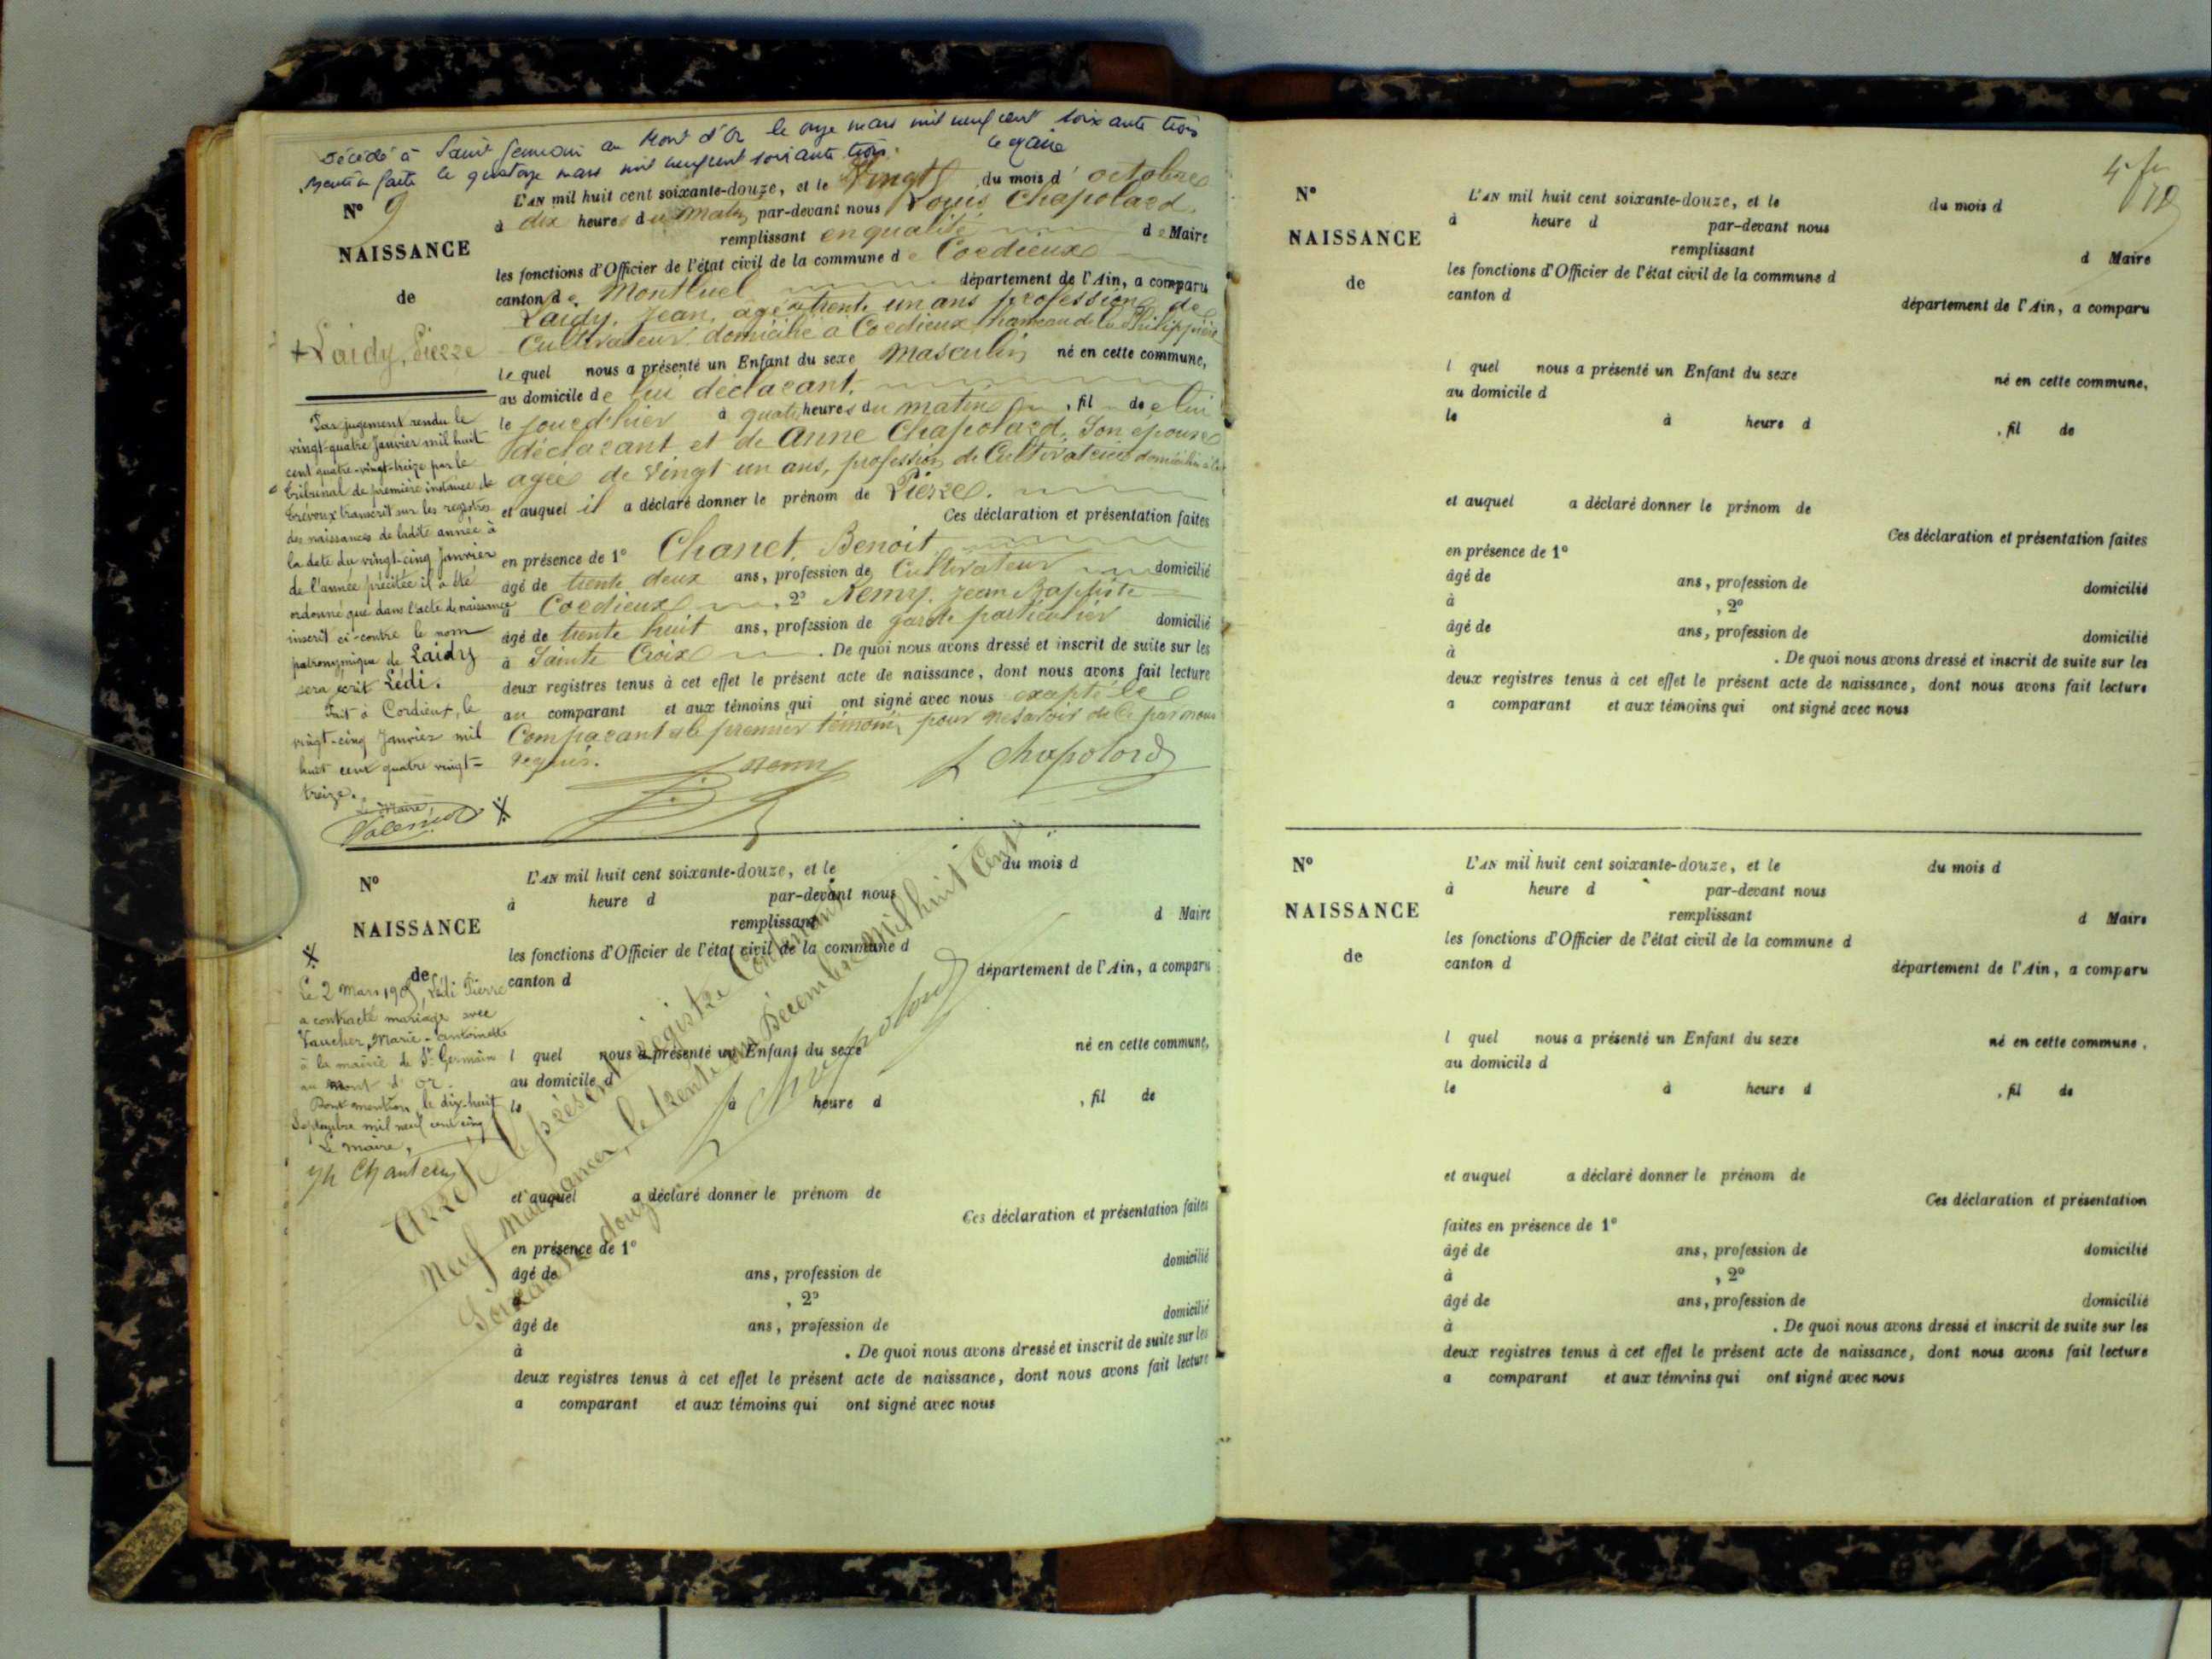 Décédé à Saint Germain au Mont d'Or le onze mars mil neuf cent soixante trois
Mention faite le quatorze mars mil neuf cent soixante trois. Le Maire
N° 9
NAISSANCE
de
Laidy, Pierre
L'AN mil huit cent soixante-douze, et le Vingt du mois d'octobre
à dix heures du matin par-devant nous Louis Chapolard
remplissant en qualité de Maire
les fonctions d'Officier de l'état civil de la commune de Cordieux
canton de Montluel département de l'Ain, a comparu
Laidy, Jean, âgé trente un ans profession de
Cultivateur domicilié à Cordieux, hameau de la Philippière
lequel nous a présenté un Enfant du sexe Masculin né en cette commune,
au domicile de lui déclarant.
le jour d'hier à quatre heures du matin, fil de lui
déclarant et de Anne Chapolard, Son épouse
agée de Vingt un ans, profession de Cultivatrice
et auquel il a déclaré donner le prénom de Pierre.
Ces déclaration et présentation faites
en présence de 1° Chanet, Benoit
âgé de trente deux ans, profession de Cultivateur domicilié
à Cordieux, 2° Remy, Jean Baptiste
âgé de trente huit ans, profession de garde particulier domicilié
à Sainte Croix. De quoi nous avons dressé et inscrit de suite sur les
deux registres tenus à cet effet le présent acte de naissance, dont nous avons fait lecture
au comparant et aux témoins qui ont signé avec nous excepté le
Comparant et le premier témoin, pour ne savoir de ce par nous
requis.
Remy
L Chapolard
Par jugement rendu le
vingt-quatre Janvier mil huit
cent quatre-vingt-treize par le
tribunal de première instance de
Trévoux transcrit sur les registres
des naissances de ladite année à
la date du vingt-cinq Janvier
de l'année précitée il a été
ordonné que dans l'acte de naissance
inscrit ci-contre le nom
patronymique de Laidy
sera écrit Lédi.
Fait à Cordieux, le
vingt-cinq Janvier mil
huit cent quatre vingt-
treize.
Le Maire
N°
NAISSANCE
de
L'AN mil huit cent soixante-douze, et le du mois d
à heure d par-devant nous
remplissant d Maire
les fonctions d'Officier de l'état civil de la commune d
canton d département de l'Ain, a comparu
l quel nous a présenté un Enfant du sexe né en cette commune,
au domicile d
le à heure d , fil de
et auquel a déclaré donner le prénom de
Ces déclaration et présentation faites
en présence de 1°
âgé de ans, profession de domicilié
à , 2°
âgé de ans, profession de domicilié
à . De quoi nous avons dressé et inscrit de suite sur les
deux registres tenus à cet effet le présent acte de naissance, dont nous avons fait lecture
a comparant et aux témoins qui ont signé avec nous
Le 2 Mars 1905, Lédi Pierre
a contracté mariage avec
Vaucher, Marie-Antoinette
à la mairie de St Germain
au Mont d'Or.
Dont mention, le dix-huit
Septembre mil neuf cent cinq
Le Maire,
Arrêté le présent Régistre Contenant
Neuf Naissances, le trente un Décembre Mil huit Cent
Soixante douze
L Chapolard
N°
NAISSANCE
de
L'AN mil huit cent soixante-douze, et le du mois d
à heure d par-devant nous
remplissant d Maire
les fonctions d'Officier de l'état civil de la commune d
canton d département de l'Ain, a comparu
l quel nous a présenté un Enfant du sexe né en cette commune,
au domicile d
le à heure d , fil de
et auquel a déclaré donner le prénom de
Ces déclaration et présentation faites
en présence de 1°
âgé de ans, profession de domicilié
à , 2°
âgé de ans, profession de domicilié
à . De quoi nous avons dressé et inscrit de suite sur les
deux registres tenus à cet effet le présent acte de naissance, dont nous avons fait lecture
a comparant et aux témoins qui ont signé avec nous
N°
NAISSANCE
de
L'AN mil huit cent soixante-douze, et le du mois d
à heure d par-devant nous
remplissant d Maire
les fonctions d'Officier de l'état civil de la commune d
canton d département de l'Ain, a comparu
l quel nous a présenté un Enfant du sexe né en cette commune,
au domicile d
le à heure d , fil de
et auquel a déclaré donner le prénom de
Ces déclaration et présentation
faites en présence de 1°
âgé de ans, profession de domicilié
à , 2°
âgé de ans, profession de domicilié
à . De quoi nous avons dressé et inscrit de suite sur les
deux registres tenus à cet effet le présent acte de naissance, dont nous avons fait lecture
a comparant et aux témoins qui ont signé avec nous